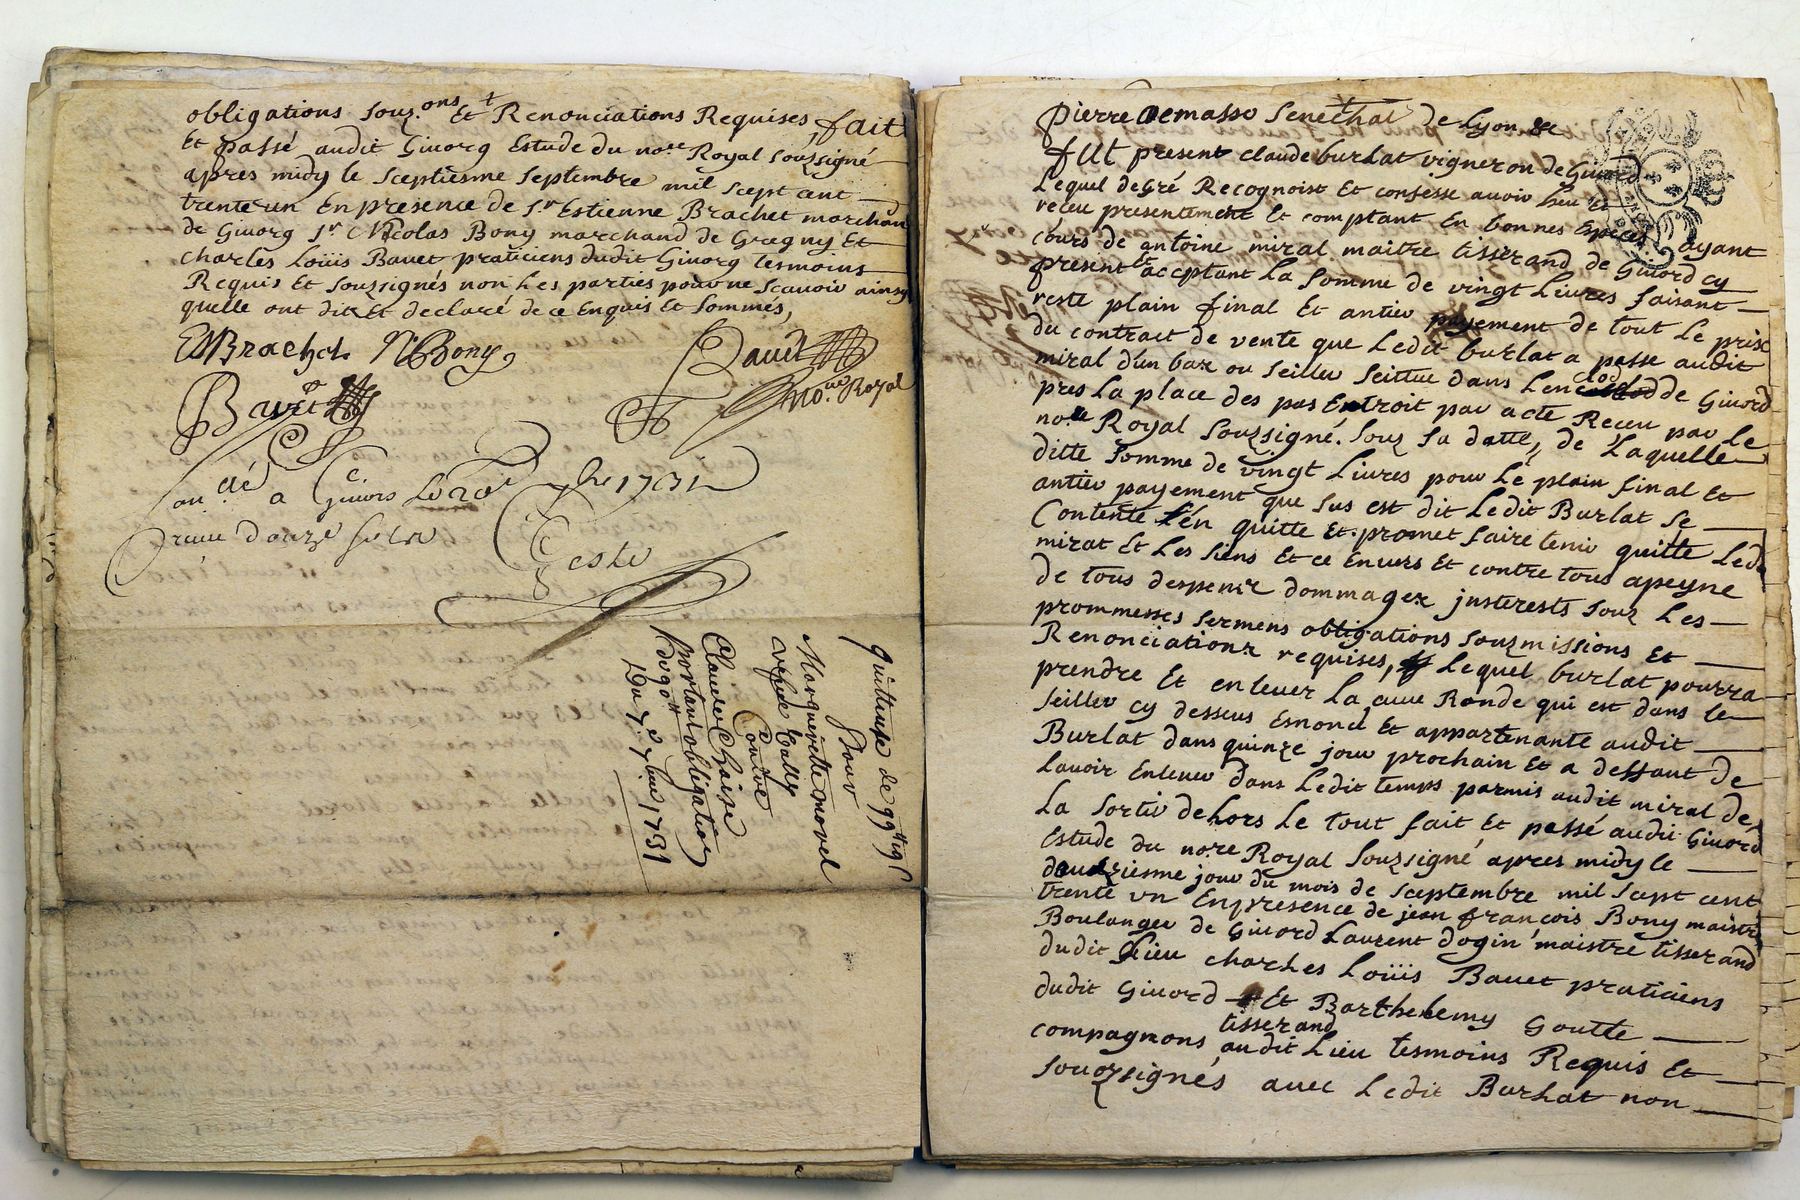 obligations souz.ons Et Renonciations Requises, fait
Et passé audit Giuorg Estude du no.re Royal souzsigné
apres midy le sceptiesme septembre mil scept cent
trente un En presence de S.r Estienne Brachet marchand
de Giuorg S.r Nicolas Bony marchand de Gregny Et
charles Loüis Bauet praticiens dudit Giuorg tesmoins
Requis Et souzsignés non Les parties pour ne scauoir ainsy
quelle ont dit Et declaré de ce Enquis Et sommés,
EBrachet N. Bony
Bauet
no.re Royal
Bauet
a Giuors Le 20e 1731
Receu douze sols
Geste
quittance de 99
pour
Marguerite morel
vefue Cally
Contre
Claude Chaise
portant obligation
du 7e 7bre 1731
pierre Demasso Senechal de Lyon &c
fut present claude burlat vigneron de Giuord
Lequel de Gré Recognoist Et confesse auoir heu et
receu presentement Et comptant En bonnes Especes ayant
cours de antoine miral maitre tisserand de Giuord cy
present et acceptant La somme de vingt Liures faisant
reste plain final Et antier payement de tout Le prise
du contract de vente que Ledit burlat a passe audit
miral d'un bax ou seillier seittue dans Lenclod de Giuord
pres La place des pas Entroit par acte Receu par Le
no.re Royal souzsigné. souz sa datte, de Laquelle
ditte somme de vingt Liures pour Le plain final Et
antier payement que sus est dit Ledit Burlat se
Contente L'en quitte Et promet faire tenir quitte Ledit
mirat Et Les siens Et ce Enuers Et contre tous apeyne
de tous despenz dommagez justerests souz Les
prommesses sermens obligations souzmissions Et
Renonciationz requises, Lequel burlat pourra
prendre Et enleuer La cuue Ronde qui est dans le
seillier cy dessus Enoncé Et appartenante audit
Burlat dans quinze jour prochain Et a deffaut de
Lauoir Enleuer dans Ledit temps parmis audit miral de
La sortir dehors Le tout fait Et passé audit Giuord
Estude du no.re Royal souzsigné apres midy le
douziesme jour du mois de sceptembre mil scept cent
trente vn Enpresence de jean françois Bony maistre
Boulanger de Giuord Laurent dogin maistre tisserand
dudit Lieu charles Loüis Bauet praticiens
dudit Giuord Et Barthelemy Goutte
compagnons tisserand audit Lieu tesmoins Requis Et
souozsignés auec Ledit Burlat non